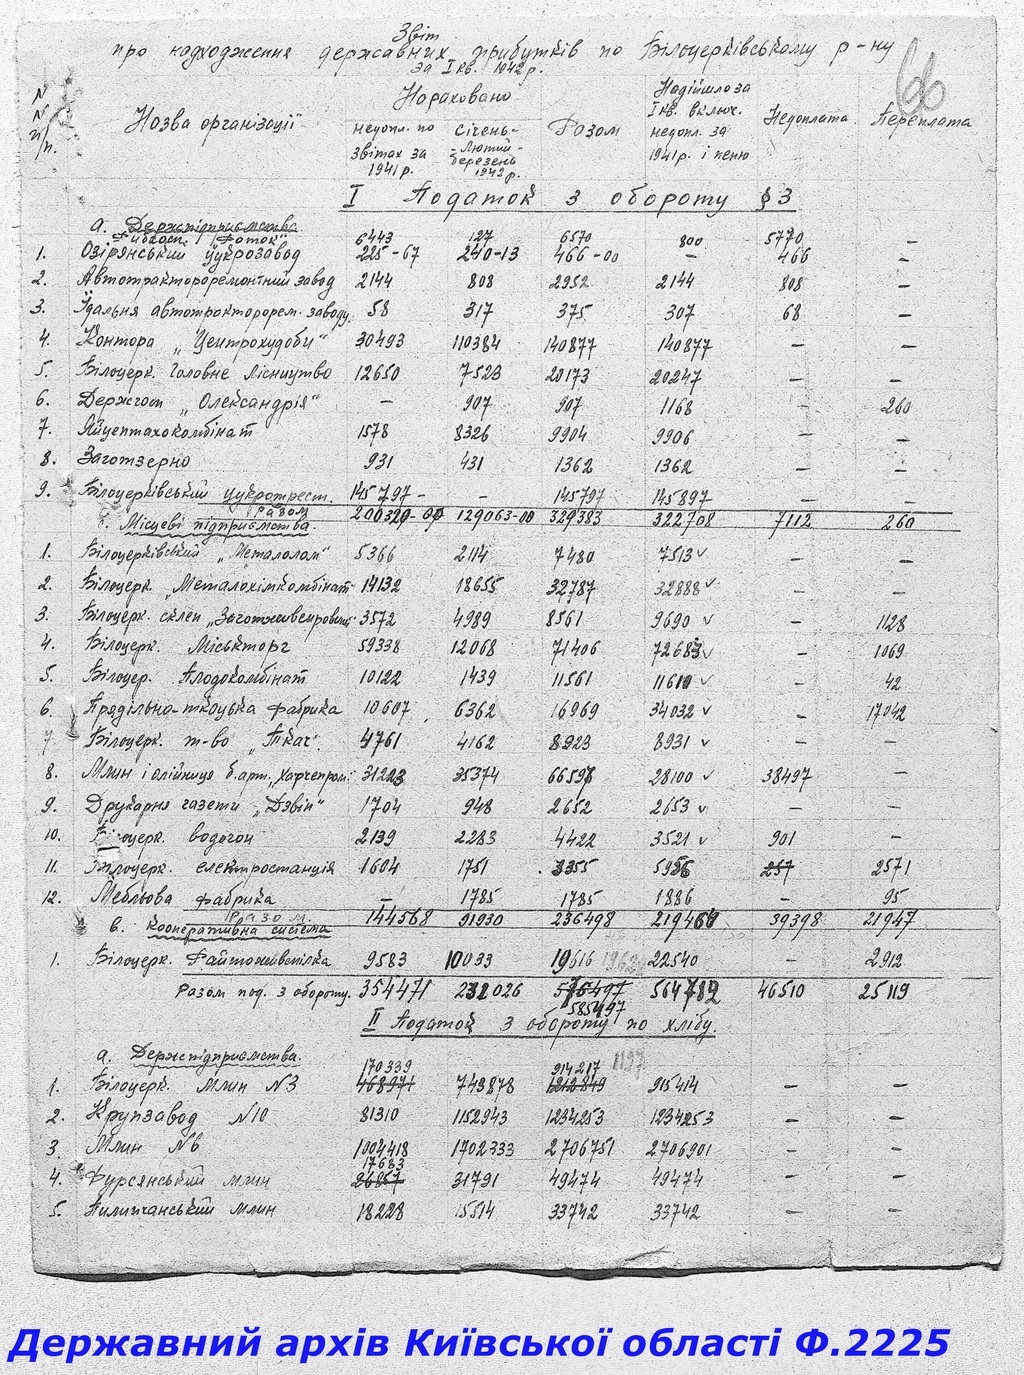 Звіт
про надходження державних прибутків по Білоцерківському р-ну
за I кв. 1942 р.
66
N N п/п. Назва організації Нараховано Надійшло за I кв. включ. недопл. за 1941 р. і пеню Недоплата Переплата
недопл. по звітах за 1941 р. січень-лютий-березень 1942 р. Разом
I Податок з обороту § 3
а. Держпідприємства
6443 127 6570 800 5770 —
1. Озірянський цукрозавод 225-67 240-13 466-00 — 466 —
2. Автотрактороремонтний завод 2144 808 2952 2144 808 —
3. Їдальня автотракторорем. заводу 58 317 375 307 68 —
4. Контора „Центрохудоби" 30493 110384 140877 140877 — —
5. Білоцерк. Головне лісництво 12650 7523 20173 20247 — —
6. Держгосп „Олександрія" — 907 907 1168 260
7. Яйцептахокомбінат 1578 8326 9904 9906 — —
8. Заготзерно 931 431 1362 1362 — —
9. Білоцерківський цукротрест. 145797- — 145797 145897 — —
Разом 200320-00 129063-00 329383 322708 7112 260
Місцеві підприємства.
1. Білоцерківський „Металолом" 5366 2114 7480 7513 ✓ — —
2. Білоцерк. „Металохімкомбінат" 14132 18655 32787 32888 ✓ — —
3. Білоцерк. склеп 3572 4989 8561 9690 ✓ — 1128
4. Білоцерк. Міськторг 59338 12068 71406 72683 ✓ — 1069
5. Білоцер. Плодокомбінат 10122 1439 11561 11610 ✓ — 42
6. Прядільно-ткацька фабрика 10607 6362 16969 34032 ✓ — 17042
7. Білоцерк. т-во „Ткач". 4761 4162 8923 8931 ✓ — —
8. Млин і олійниця б. арт. „Харчепром" 31223 35374 66597 28100 ✓ 38497 —
9. Друкарня газети „Дзвін" 1704 948 2652 2653 ✓ — —
10. Білоцерк. водогон 2139 2283 4422 3521 ✓ 901 —
11. Білоцерк. електростанція 1604 1751 3355 5926 257 2571
12. Мебльова фабрика — 1785 1785 1886 — 95
Разом. 144568 91930 236498 219460 39398 21947
в. Кооперативна система
1. Білоцерк. Райспоживспілка 9583 10033 19616 22540 — 2912
Разом под. з обороту. 354471 231026 575497 564782 46510 25119
585497
II Податок з обороту по хлібу.
а. Держпідприємства.
170339 914217 1197
1. Білоцерк. Млин N3 468971 743878 1212849 915414 — —
2. Крупзавод N10 81310 1152943 1234253 1234253 — —
3. Млин N6 1004418 1702333 2706751 2706901 — —
17683
4. Фурсянський млин 26857 31791 49474 49474 — —
5. Пилипчанський млин 18228 15514 33742 33742 — —
Державний архів Київської області Ф.2225